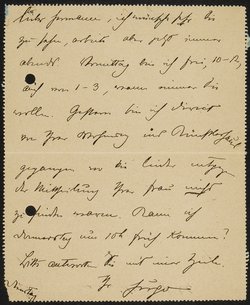 Lieber Hermann, ich wünsche sehr Sie
zu sehen, arbeite aber jetzt immer
abends. Dienstag bin ich frei, 10-12,
auch von 1-3, wann immer Sie
wollen. Gestern bin ich direct
von Ihrer Wohnung ins
gegangen wo Sie leider entgegen
der Mittheilung Ihrer Frau nicht
zu finden waren. Kann ich
Donnerstag um 10h früh kommen?
Bitte antworten Sie mit einer Zeile
Ihr Hugo